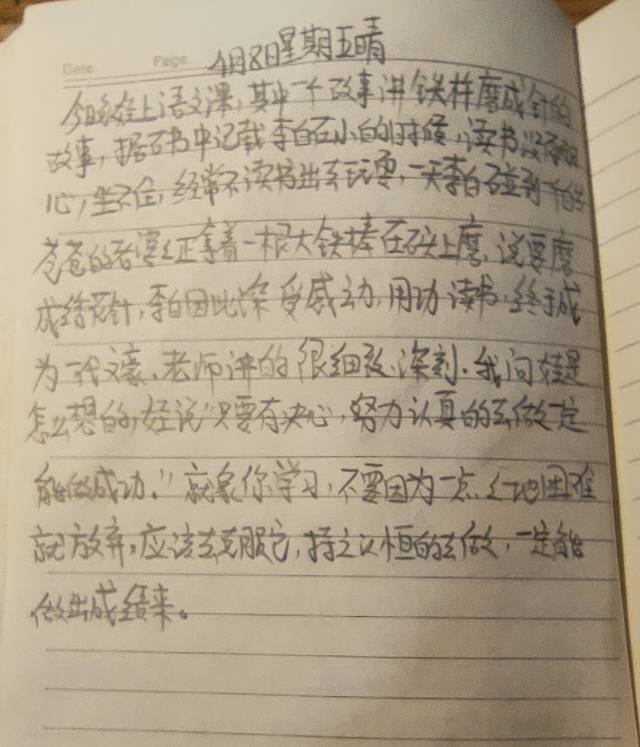 Date Page 4月8日星期五晴
今日娃上语文课，其中一个故事讲铁杵磨成针的
故事，据书中记载李白在小的时候，读书没有
心，坐不住，经常不读书出去玩耍，一天李白碰到一白发
苍苍的老婆婆正拿着一根大铁棒在石头上磨，说要磨
成绣花针，李白因此深受感动，用功读书，终于成
为一代文豪。老师讲的很细致、深刻。我问娃是
怎么想的，娃说“只要有决心，努力认真的去做一定
能做成功。”就象你学习，不要因为一点点地困难
就放弃，应该去克服它，持之以恒的去做，一定能
做出成绩来。